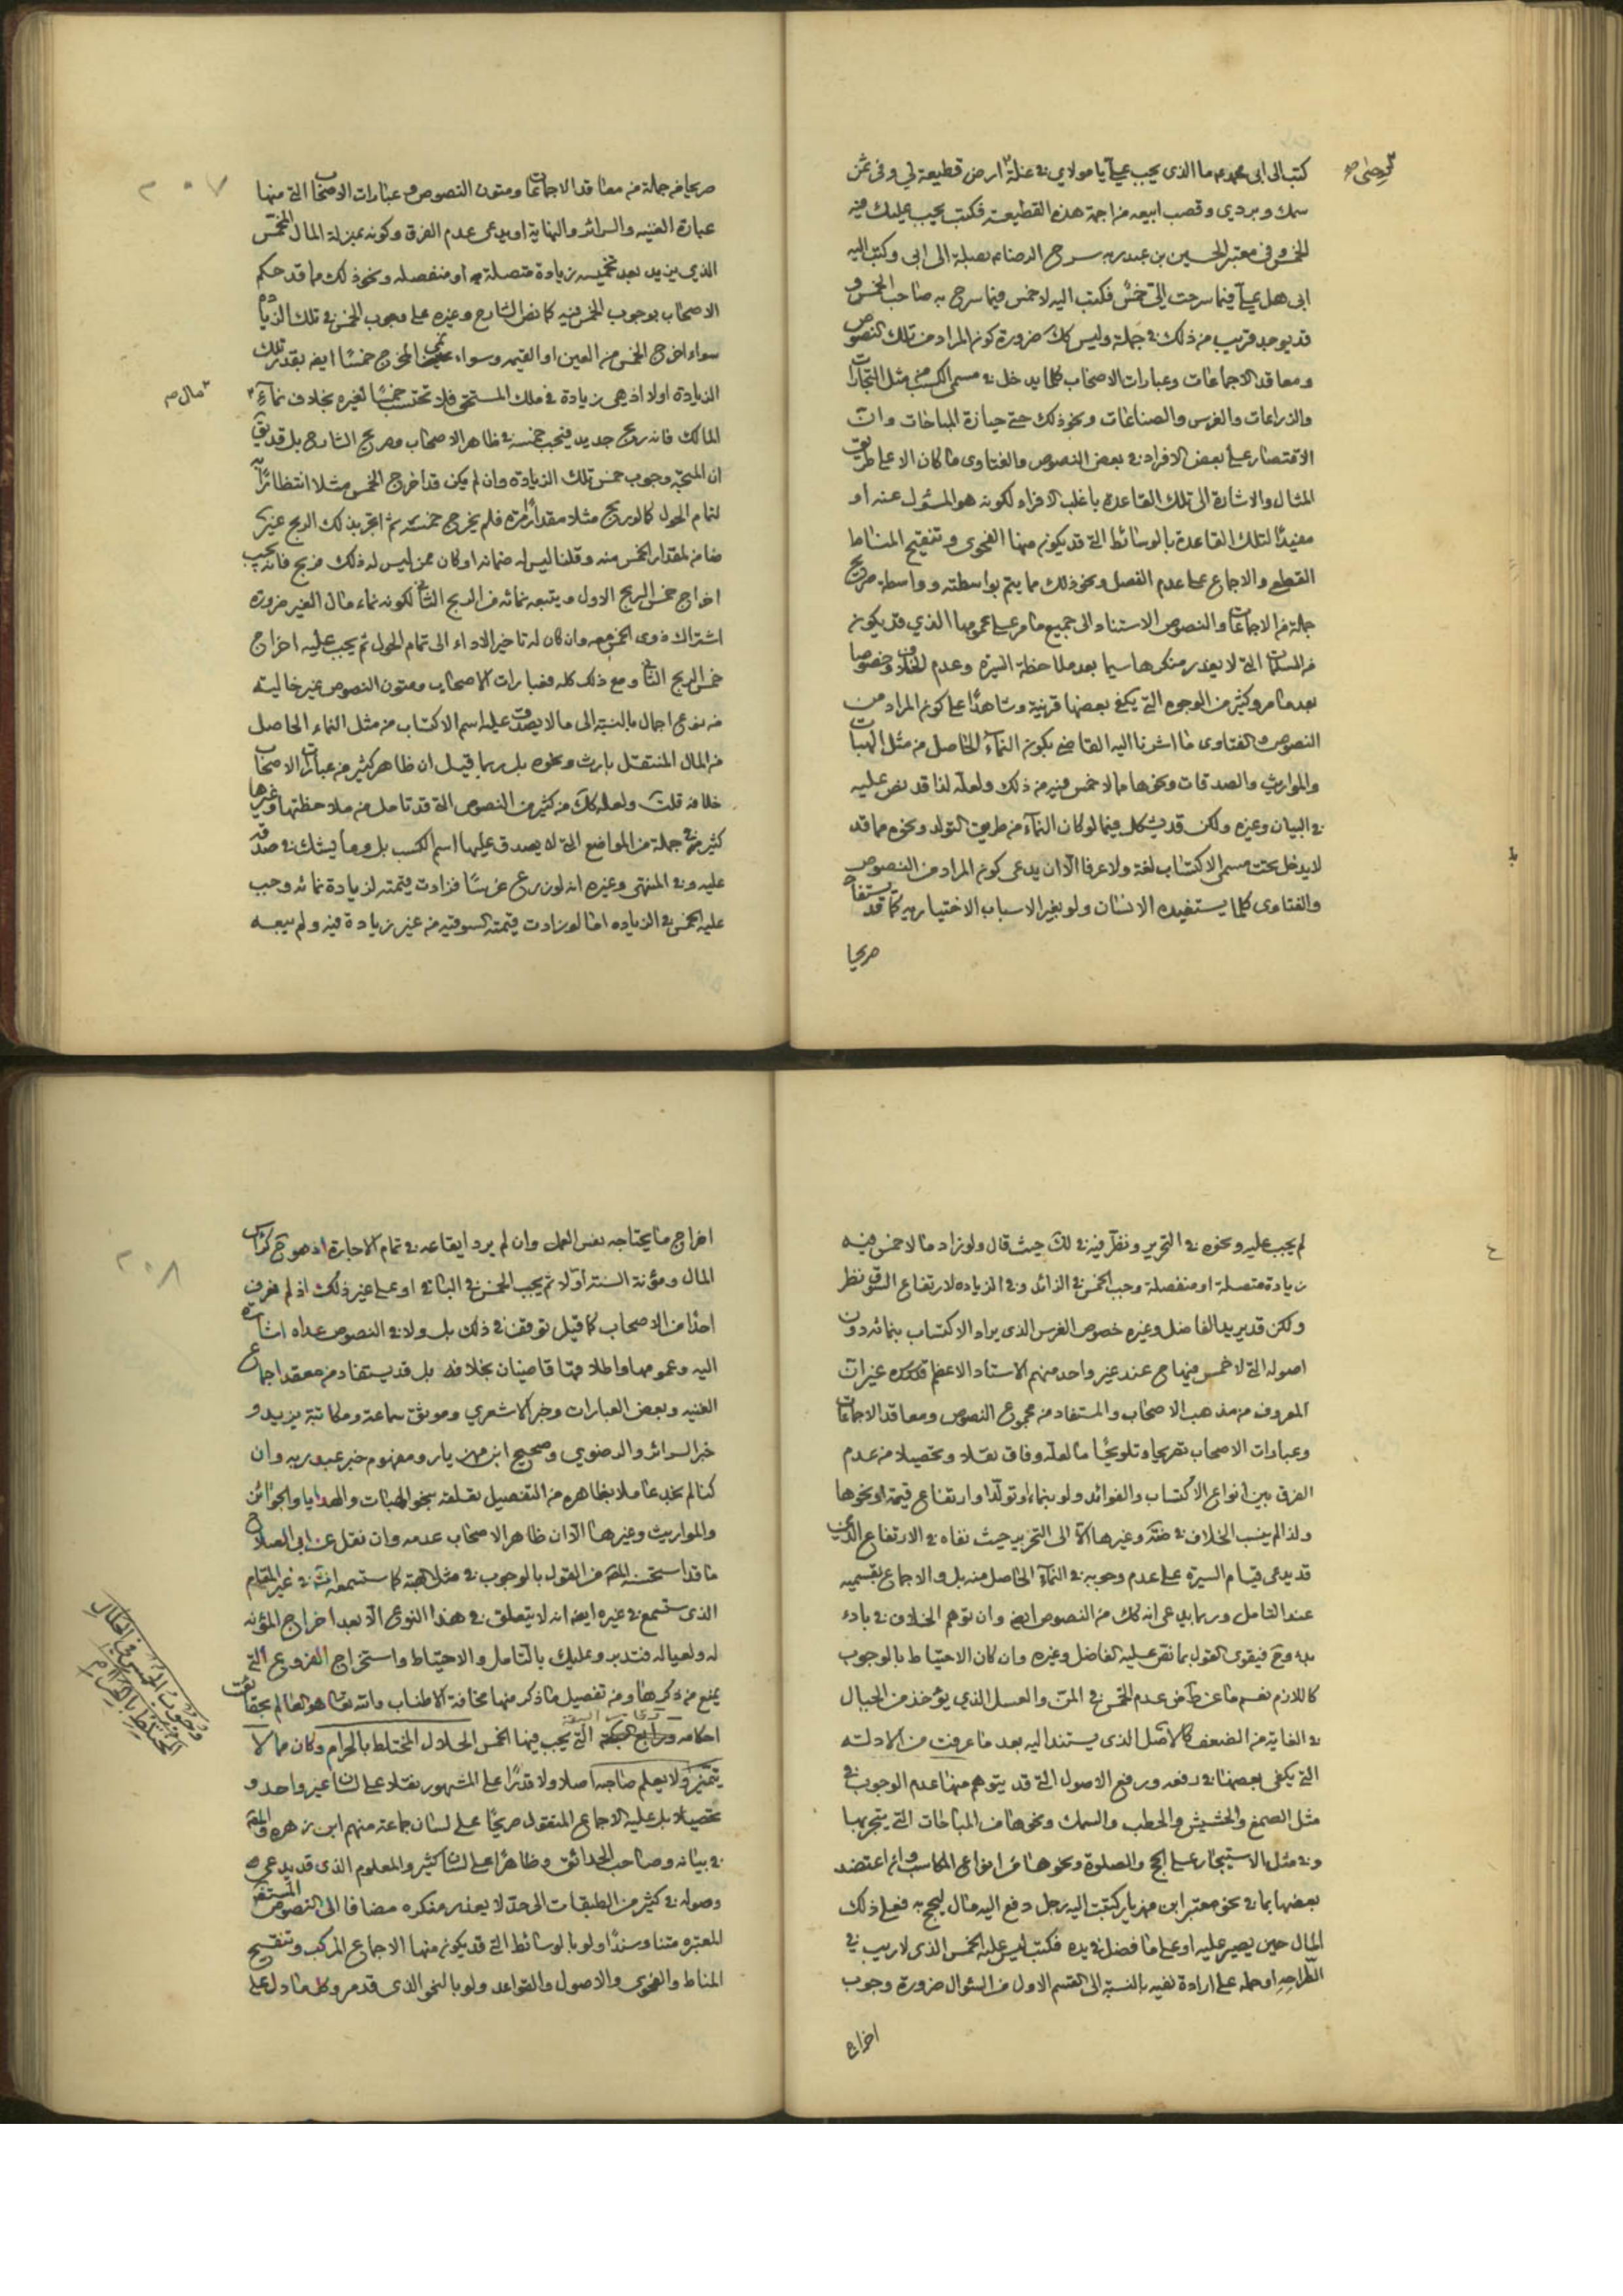 كتب الى ابى محمد ما الذى يجب على يا مولاي فى غلة ارض قطيعة لي وفى ثمن
سمك وبردي وقصب ابيعه من اجمة هذه القطيعة فكتب يجب عليك فيه
الخمس وفى معتبر الحسين بن عبد ربه سرح الرضا بصلة الى ابى وكتب اليه
ابى هل على فيما سرحت الى خمس فكتب اليه لا خمس فيما سرح به صاحب الخمس و
قد يوهم قريب من ذلك فى جملة وليس كك ضرورة كون المراد من تلك النصوص
ومعاقد الاجماعات وعبارات الاصحاب كلما يدخل فى مسمى الكسب من مثل التجارات
والزراعات والغرس والصناعات ونحو ذلك حتى حيازة المباحات وان
الاقتصار على بعض الافراد فى بعض النصوص والفتاوى ما كان الا على طريق
المثال والاشارة الى تلك القاعدة باغلب الافراد لكونه هو المسئول عنه او
مفيدًا لتلك القاعدة بالوسائط التى قد يكون منها الفحوى وتنقيح المناط
القطعى والاجماع على عدم الفصل ونحو ذلك مما يتم بواسطته وواسطة صريح
جملة من الاجماعات والنصوص الاستناد الى جميع ما مر على عمومها الذي قد يكون
من المسلمات التى لا يعذر منكرها سيما بعد ملاحظة السيرة وعدم الخلاف وخصوصا
بعد ما مر وكثير من الوجوه التى يكفى بعضها قرينة وشاهدًا على كون المراد من
النصوص والفتاوى ما اشرنا اليه القاضى بكون النمآء الحاصل من مثل الهبات
والمواريث والصدقات ونحوها مما لا خمس فيه من ذلك ولعله لذا قد نص عليه
فى البيان وغيره ولكن قد يشكل فيما لو كان النمآء من طريق التولد ونحوه مما قد
لا يدخل تحت مسمى الاكتساب لغة ولا عرفا الا ان يدعى كون المراد من النصوص
والفتاوى كلما يستفيده الانسان ولو بغير الاسباب الاختياريه كما قد يستفاد
صريحا
صريحا من جملة من معاقد الاجماعات ومتون النصوص وعبارات الاصحاب التى منها
عبارة الغنيه والسرائر والنهاية او يدعى عدم الفرق وكونه بمنزلة المال المخمس
الذي يزيد بعد تخميسه زيادة متصلة به او منفصله ونحو ذلك مما قد حكم
الاصحاب بوجوب الخمس فيه كما نص الشارع وغيره على وجوب الخمس فى تلك الزيادة
سواء اخرج الخمس من العين او القيمه وسواء نمى المخرج خمسًا ايضا بقدر تلك
الزيادة اولا اذ هى زيادة فى ملك المستحق فلا تحتسب خمسًا لغيره بخلاف نمآء
مال صح
المالك فانه ربح جديد فيجب خمسه فى ظاهر الاصحاب وصريح الشارح بل قد يق
ان المتجه وجوب خمس تلك الزيادة وان لم يكن قد اخرج الخمس مثلا انتظارًا به
لتمام الحول كما لو ربح مثلا مقدارًا مرة فلم يخرج خمسه ثم اتجر بذلك الربح غير
ضامن لمقدار الخمس منه وقلنا ليس له ضمانه او كان ممن ليس له ذلك فربح فانه يجب
اخراج خمس الربح الاول ويتبعه نمائه من الربح الثانى لكونه نماء مال الغير ضرورة
اشتراك ذوى الخمس معه وان كان له تاخير الاداء الى تمام الحول ثم يجب عليه اخراج
خمس الربح الثانى ومع ذلك كله فعبارات الاصحاب ومتون النصوص غير خالية
من نوع اجمال بالنسبة الى ما لا يصدق عليه اسم الاكتساب من مثل النماء الحاصل
من المال المنتقل بارث ونحوه بل ربما قيل ان ظاهر كثير من عبارات الاصحاب
خلافه قلت ولعله كك من كثير من النصوص التى قد تامل من ملاحظتها وغيرها
كثير منهم فى جملة من المواضع التى لا يصدق عليها اسم الكسب بل وما يشك فى صدقه
عليه وفى المنتهى وغيره انه لو زرع غرسًا فزادت قيمته لزيادة نمائه وجب
عليه الخمس فى الزياده اما لو زادت قيمته السوقيه من غير زيادة فيه ولم يبعه
٢٠٧
لم يجب عليه ونحوه فى التحرير ونظر فيه فى لك حيث قال ولو زاد ما لا خمس فيه
زيادة متصلة او منفصلة وجب الخمس فى الزائد وفى الزياده لارتفاع السوق نظر
ولكن قد يريد الفاضل وغيره خصوص الغرس الذى يراد الاكتساب بنمائه دون
اصوله التى لا خمس فيها ح عند غير واحد منهم الاستاد الاعظم غير ان
المعروف من مذهب الاصحاب والمستفاد من مجموع النصوص ومعاقد الاجماعات
وعبارات الاصحاب تصريحا وتلويحًا ما لعله وفاق نقلا وتحصيلا من عدم
الفرق بين انواع الاكتساب والفوائد ولو بنماء او تولد او ارتفاع قيمة او نحوها
ولذا لم ينسب الخلاف فى وغيرها الا الى التحرير حيث نفاه فى الارتفاع الذى
قد يدعى قيام السيرة على عدم وجوبه فى النمآء الحاصل منه بل والاجماع بقسميه
عند التامل وربما يدعى انه كك من النصوص ايض وان توهم الخلاف فى بادء
بدء وح فيقوى القول بما نص عليه الفاضل وغيره وان كان الاحتياط بالوجوب
كاللازم نعم ما عن ط من عدم الخمس فى المن والعسل الذي يؤخذ من الجبال
فى الغاية من الضعف كالاصل الذى يستند اليه بعد ما عرفت من الادلة
التى يكفى بعضها فى دفعه ورفع الاصول التى قد يتوهم منها عدم الوجوب فى
مثل الصمغ والحشيش والحطب والسمك ونحوها من المباحات التى يتجر بها
وفى مثل الاستيجار على الحج والصلوة ونحوها من انواع المكاسب وان اعتضد
بعضها بما فى نحو معتبر ابن مهزيار كتبت اليه رجل دفع اليه مال ليحج به فعلى ذلك
المال حين يصير عليه او على ما فضل فى يده فكتب ليس عليه الخمس الذى لا ريب فى
اطراحه او حمله على ارادة نفيه بالنسبة الى القسم الاول من السئوال ضرورة وجوب
اخراج
اخراج ما يحتاجه نفس العمل وان لم يرد ايقاعه فى تمام الاجارة اذ هو ح كراس
المال ومؤنة السنة اولا ثم يجب الخمس فى الباقى او على غير ذلك اذ لم نعرف
احدًا من الاصحاب كما قيل توقف فى ذلك بل ولا فى النصوص عداه اشارة
اليه وعمومها واطلاقها قاضيان بخلافه بل قد يستفاد من معقد اجماع
الغنيه وبعض العبارات وخبر الاشعري وموثق سماعة ومكاتبة يزيد و
خبر السرائر والرضوي وصحيح ابن مهزيار ومفهوم خبر عبد ربه وان
كنا لم نجد عاملا بظاهره من التفصيل نعلقه بنحو الهبات والهدايا والجوائز
والمواريث وغيرها الا ان ظاهر الاصحاب عدمه وان نقل عن ابى الصلاح
ما قد استحسنه من القول بالوجوب فى مثل الهبة كما ستسمعه انش فى غير المقام
الذى ستسمع فى غيره ايض انه لا يتعلق فى هذا النوع الا بعد اخراج المؤنه
له ولعياله فتدبر وعليك بالتامل والاحتياط واستخراج الفروع التى
يمنع من ذكرها ومن تفصيل ما ذكر منها مخافة الاطناب والله تعا هو العالم بحقايق
احكامه التى يجب فيها الخمس الحلال المختلط بالحرام وكان مما لا
يتميز ولا يعلم صاحبه اصلا ولا قدرًا على المشهور نقلا على لسان غير واحد و
تحصيلا بل عليه الاجماع المنقول صريحًا على لسان جماعة منهم ابن زهره و
فى بيانه وصاحب الحدائق وظاهرًا على لسان كثير والمعلوم الذى قد يدعى
وصوله فى كثير من الطبقات الى حد لا يعذر منكره مضافا الى النصوص المستفيضة
المعتبره متنا وسندًا ولو بالوسائط التى قد يكون منها الاجماع المركب وتنقيح
المناط والفحوى والاصول والقواعد ولو بالنحو الذى قد مر وكل ما دل على
وجوب الخمس فى الحلال
المختلط بالحرام
٢٠٨